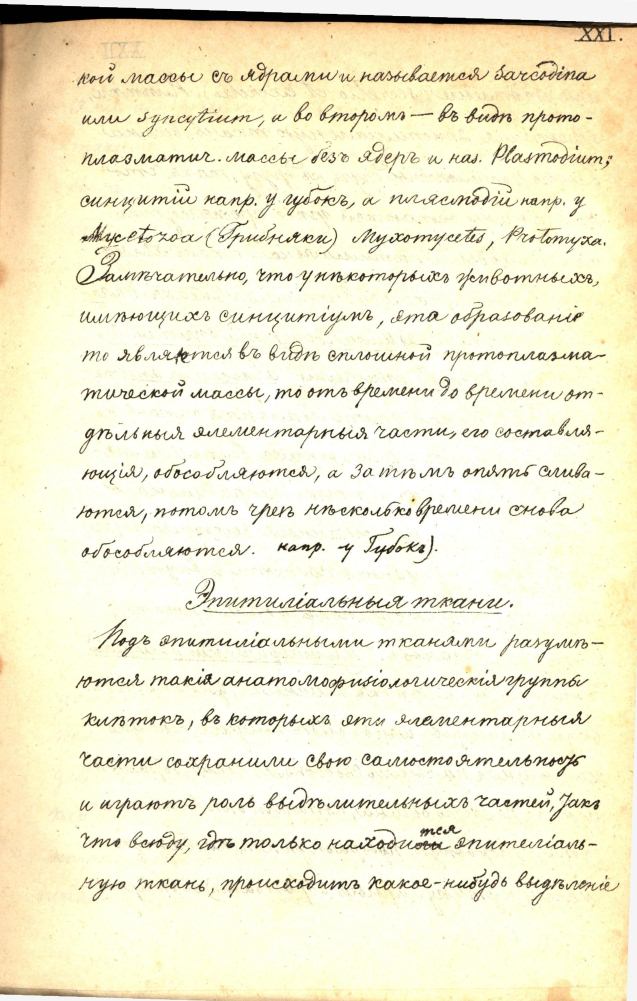 XXI.
кой массы съ ядрами и называется Sarcodina
или Syncytium, и во второмъ — въ видѣ прото-
плазматич. массы безъ ядеръ и наз. Plasmodium;
синцитій напр. у губокъ, а плясмодій напр. у
Mycetozoa (Грибняки) Myxomycetes, Protomyxa.
Замѣчательно, что у нѣкоторыхъ животныхъ,
имѣющихъ синцитіумъ, эта образованіе
то является въ видѣ сплошной протоплазма-
тической массы, то отъ времени до времени от-
дѣльныя элементарныя части, его составля-
ющія, обособляются, а затѣмъ опять слива-
ются, потомъ чрезъ нѣсколько времени снова
обособляются. напр. у Губокъ).
Эпителіальныя ткани.
Подъ эпителіальными тканями разумѣ-
ются такія анатомофизіологическія группы
клѣтокъ, въ которыхъ эти элементарныя
части сохранили свою самостоятельность
и играютъ роль выдѣлительныхъ частей, Такъ
что всюду, гдѣ только находится эпителіаль-
ную ткань, происходитъ какое-нибудь выдѣленіе